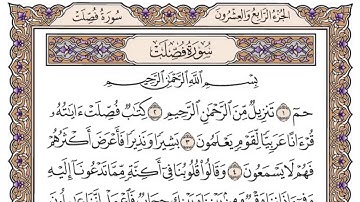 الجزء الرابع والعشرون
سورة فصلت
سورة فصلت
بسم الله الرحمن الرحيم
حم ١ تنزيل من الرحمن الرحيم ٢ كتب فصلت ءايته
قرءانا عربيا لقوم يعلمون ٣ بشيرا ونذيرا فأعرض أكثرهم
فهم لا يسمعون ٤ وقالوا قلوبنا في أكنة مما تدعونا إليه